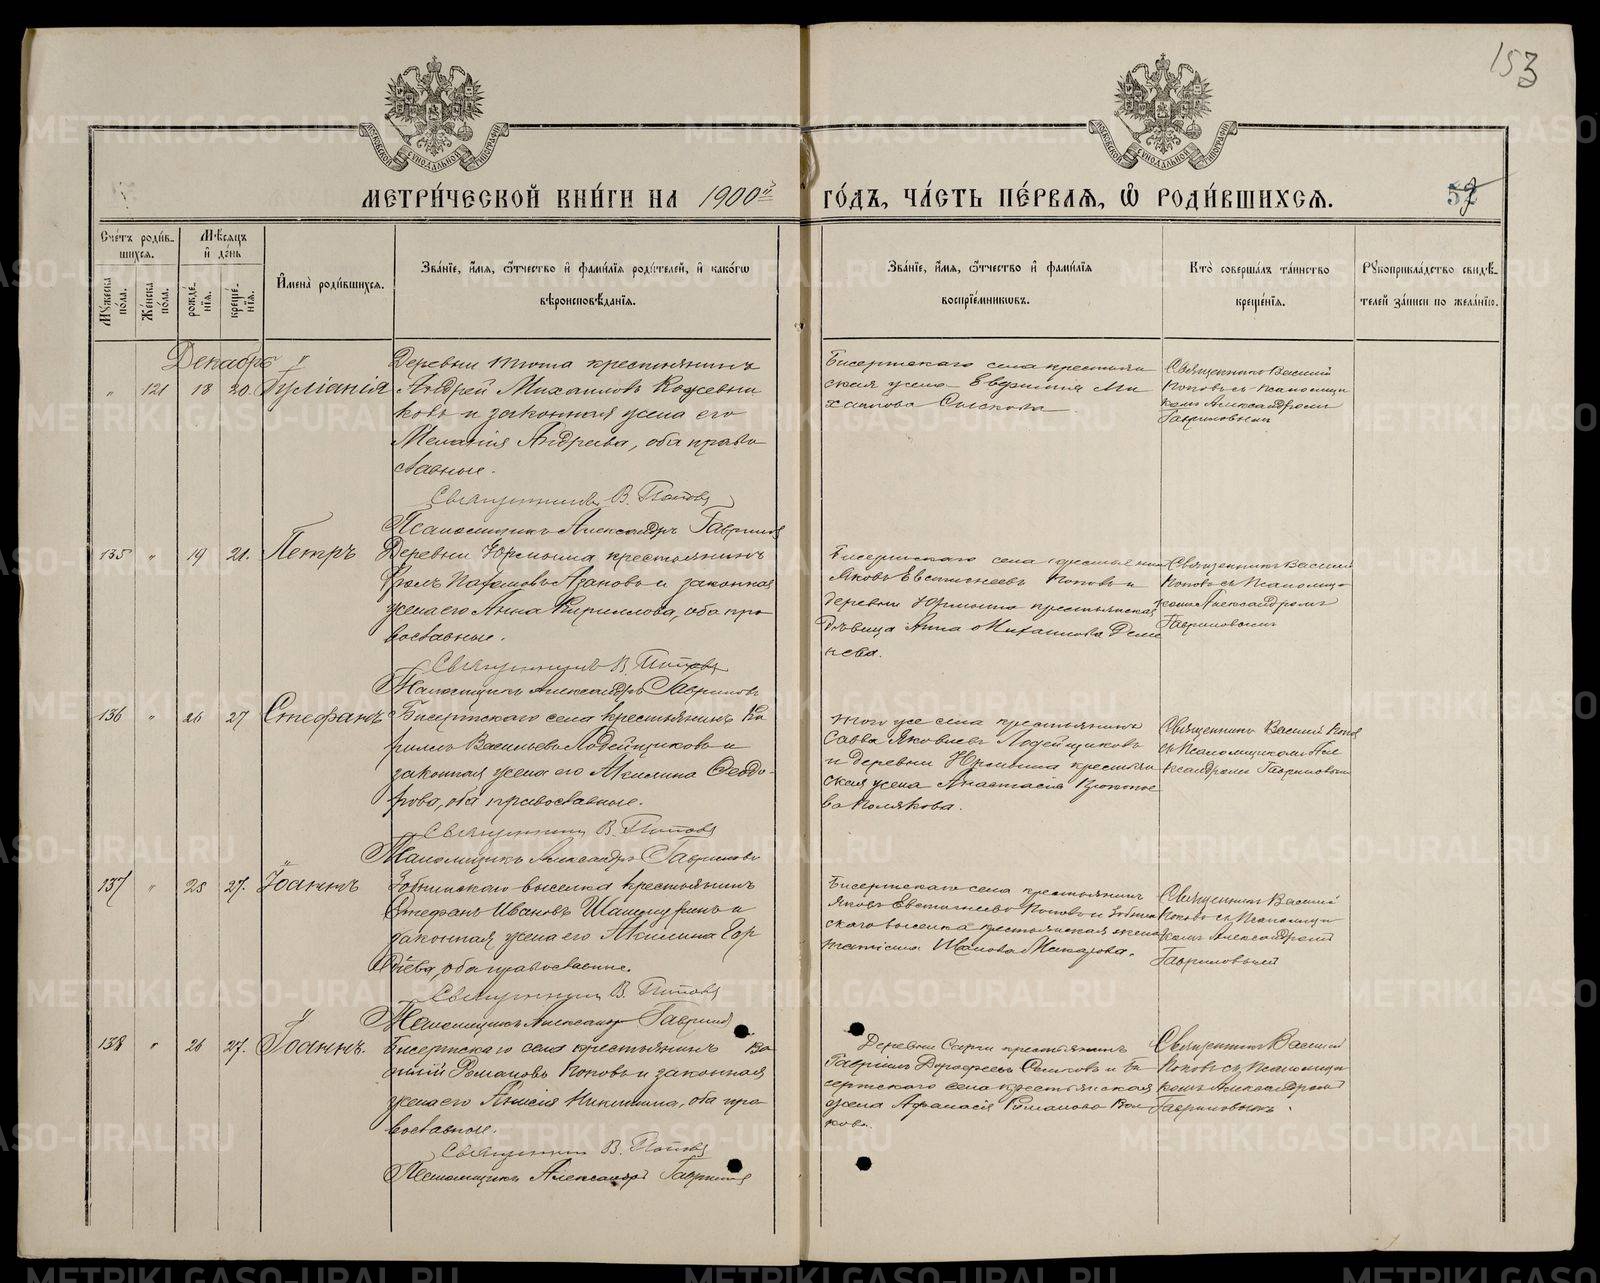 153
МЕТРИ́ЧЕСКОЙ КНИ́ГИ НА 1900й ГО́ДЪ, ЧА́СТЬ ПЕ́РВАЯ, Ѡ РОДИ́ВШИХСЯ.
57
Сче́тъ роди́в-
шихся.
Мѣ́сяцъ
и де́нь
Му́жеска
по́ла.
Же́нска
по́ла.
рожде́-
нїя.
креще́-
нїя.
И҆мена̀ роди́вшихся.
Зва́нїе, и҆́мя, ѻ҆́тчество и҆ фамі́лїя роди́телей, и҆ како́гѡ
вѣроисповѣ́данїя.
Зва́нїе, и҆́мя, ѻ҆́тчество и҆ фамі́лїя
воспрїе́мниковъ.
Кто̀ соверша́лъ та́инство
креще́нїя.
Рꙋкоприкла́дство свидѣ́-
телей за́писи по жела́нїю.
Декабрь
" 121 18 20. Іуліанія
Деревни крестьянинъ
Андрей Михаиловъ Кожевни
ковъ и законная жена его
Меланія Андреева, оба право
славные.
Священникъ В. Поповъ
Псаломщикъ Александръ Гавриловъ
Бисертскаго села крестьян
ская жена Евфимія Ми
хаилова Сыскова
Священникъ Василій
Поповъ съ псаломщи
комъ Александромъ
Гавриловымъ
135 " 19 21. Петръ
Деревни Юрмыша крестьянинъ
Азановъ и законная
жена его Анна Кириллова, оба пра
вославные.
Священникъ В. Поповъ
Псаломщикъ Александръ Гавриловъ
Бисертскаго села крестьянинъ
Яковъ Евстигнеевъ Поповъ и
деревни Юрмыша крестьянская
дѣвица Анна Михаилова Деме
нева.
Священникъ Василій
Поповъ съ псаломщи
комъ Александромъ
Гавриловымъ
136 " 26 27 Стефанъ
Бисертскаго села крестьянинъ Ки
риллъ Васильевъ Лодейщиковъ и
законная жена его Акилина Ѳеодо-
рова, оба православные.
Священникъ В. Поповъ
Псаломщикъ Александръ Гавриловъ
того же села крестьянинъ
Савва Яковлевъ Лодейщиковъ
и деревни Юрмыша крестьян
ская жена Анастасія
ва Полякова.
Священникъ Василій Поповъ
съ псаломщикомъ Але
ксандромъ Гавриловымъ
137 " 25 27. Іоаннъ
выселка крестьянинъ
Стефанъ Ивановъ и
законная жена его Акилина Гор
дѣева, оба православные.
Священникъ В. Поповъ
Псаломщикъ Александръ Гавриловъ
Бисертскаго села крестьянинъ
Яковъ Евстигнеевъ Поповъ и
скаго выселка крестьянская жена
Иванова Макарова.
Священникъ Василій
Поповъ съ псаломщи
комъ Александромъ
Гавриловымъ
138 " 26 27. Іоаннъ.
Бисертскаго села крестьянинъ Ва
силій Романовъ Поповъ и законная
жена его Анисія Никитина, оба пра
вославные.
Священникъ В. Поповъ
Псаломщикъ Александръ Гавриловъ
Деревни Сарги крестьянинъ
Гавріилъ Дороѳеевъ и Би
сертскаго села крестьянская
жена Аѳанасія Романова Вол
кова.
Священникъ Василій
Поповъ съ псаломщи
комъ Александромъ
Гавриловымъ.